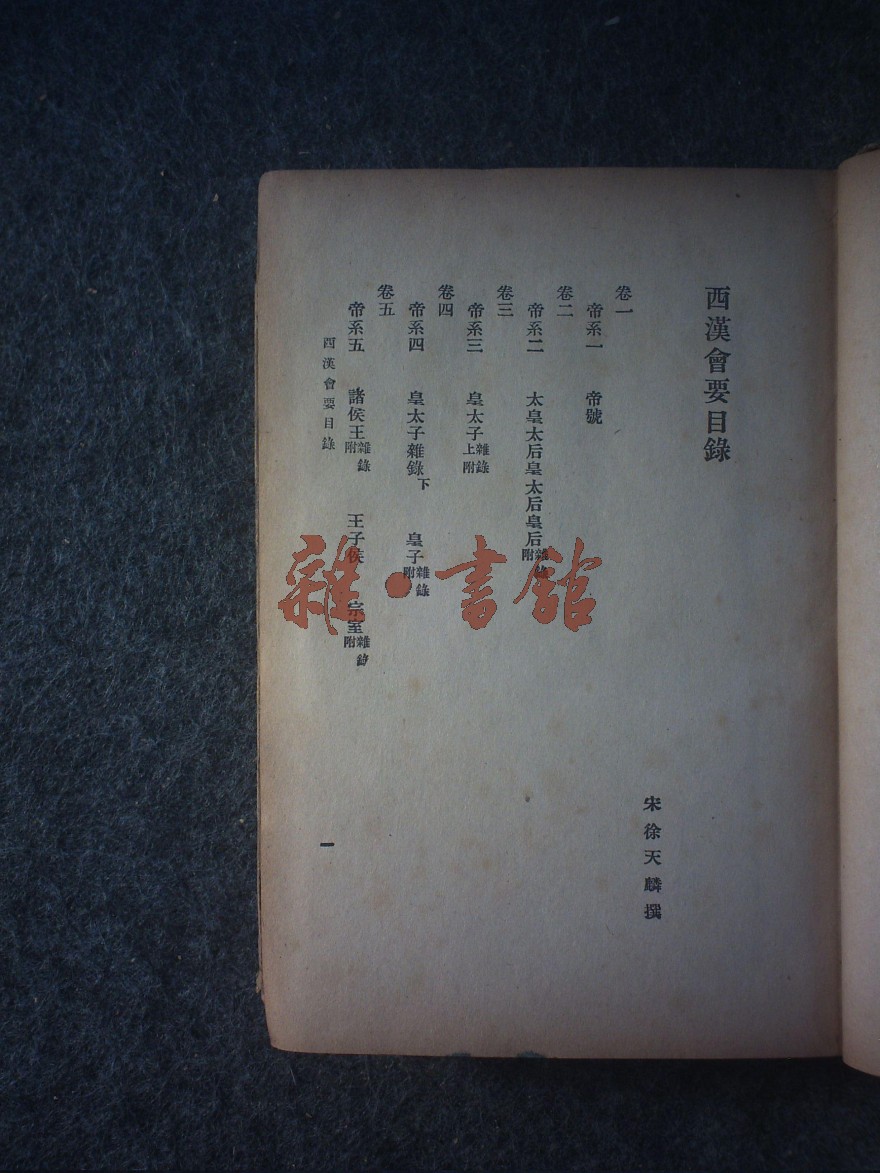 西漢會要目錄
宋徐天麟撰
卷一
帝系一 帝號
卷二
帝系二 太皇太后皇太后皇后雜錄附
卷三
帝系三 皇太子雜錄上附
卷四
帝系四 皇太子雜錄下 皇子雜錄附
卷五
帝系五 諸侯王雜錄附 王子侯 宗室雜錄附
西漢會要目錄
一
雜·書館